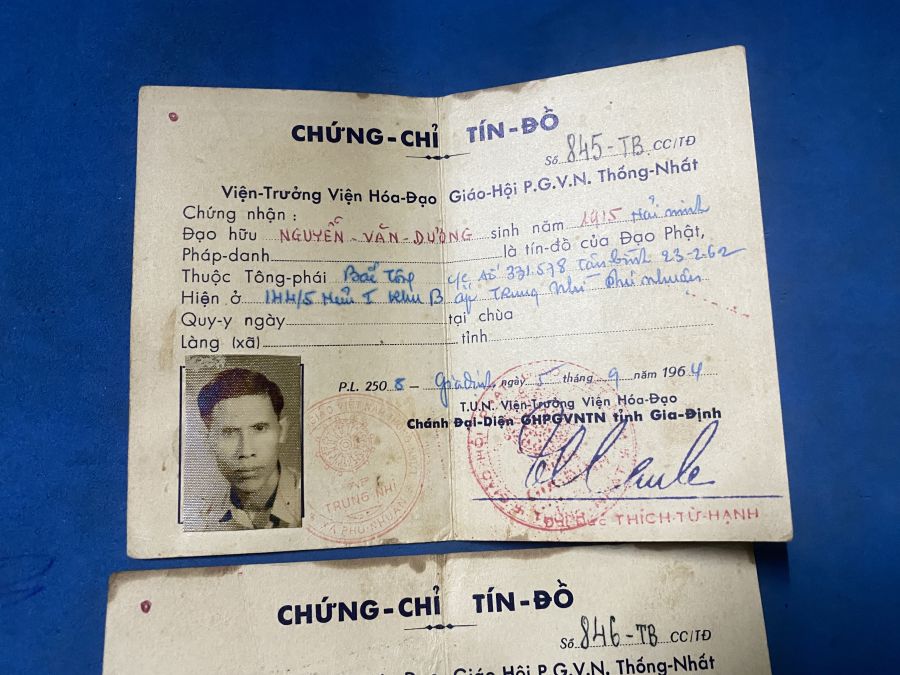 CHỨNG-CHỈ TÍN-ĐỒ
Số 845-TB CC/TĐ
Viện-Trưởng Viện Hóa-Đạo Giáo-Hội P.G.V.N. Thống-Nhất
Chứng nhận :
Đạo hữu NGUYỄN-VĂN-DƯỠNG sinh năm 1915 Hải ninh
Pháp-danh là tín-đồ của Đạo Phật,
Thuộc Tông-phái Bắc Tông c/c số 331.578 Tân bình 23-2-62
Hiện ở 144/5 Khu B ấp Trung Nhì Phú nhuận
Quy-y ngày tại chùa
Làng (xã) tỉnh
P.L. 2508 - Gia định, ngày 5 tháng 9 năm 1964
T.U.N. Viện-Trưởng Viện Hóa-Đạo
Chánh Đại-Diện GHPGVNTN tỉnh Gia-Định
TRUNG-NHÌ
XÃ PHÚ-NHUẬN
ĐẠI ĐỨC THÍCH-TỪ-HẠNH
CHỨNG-CHỈ TÍN-ĐỒ
Số 846-TB CC/TĐ
Giáo Hội P.G.V.N. Thống-Nhất